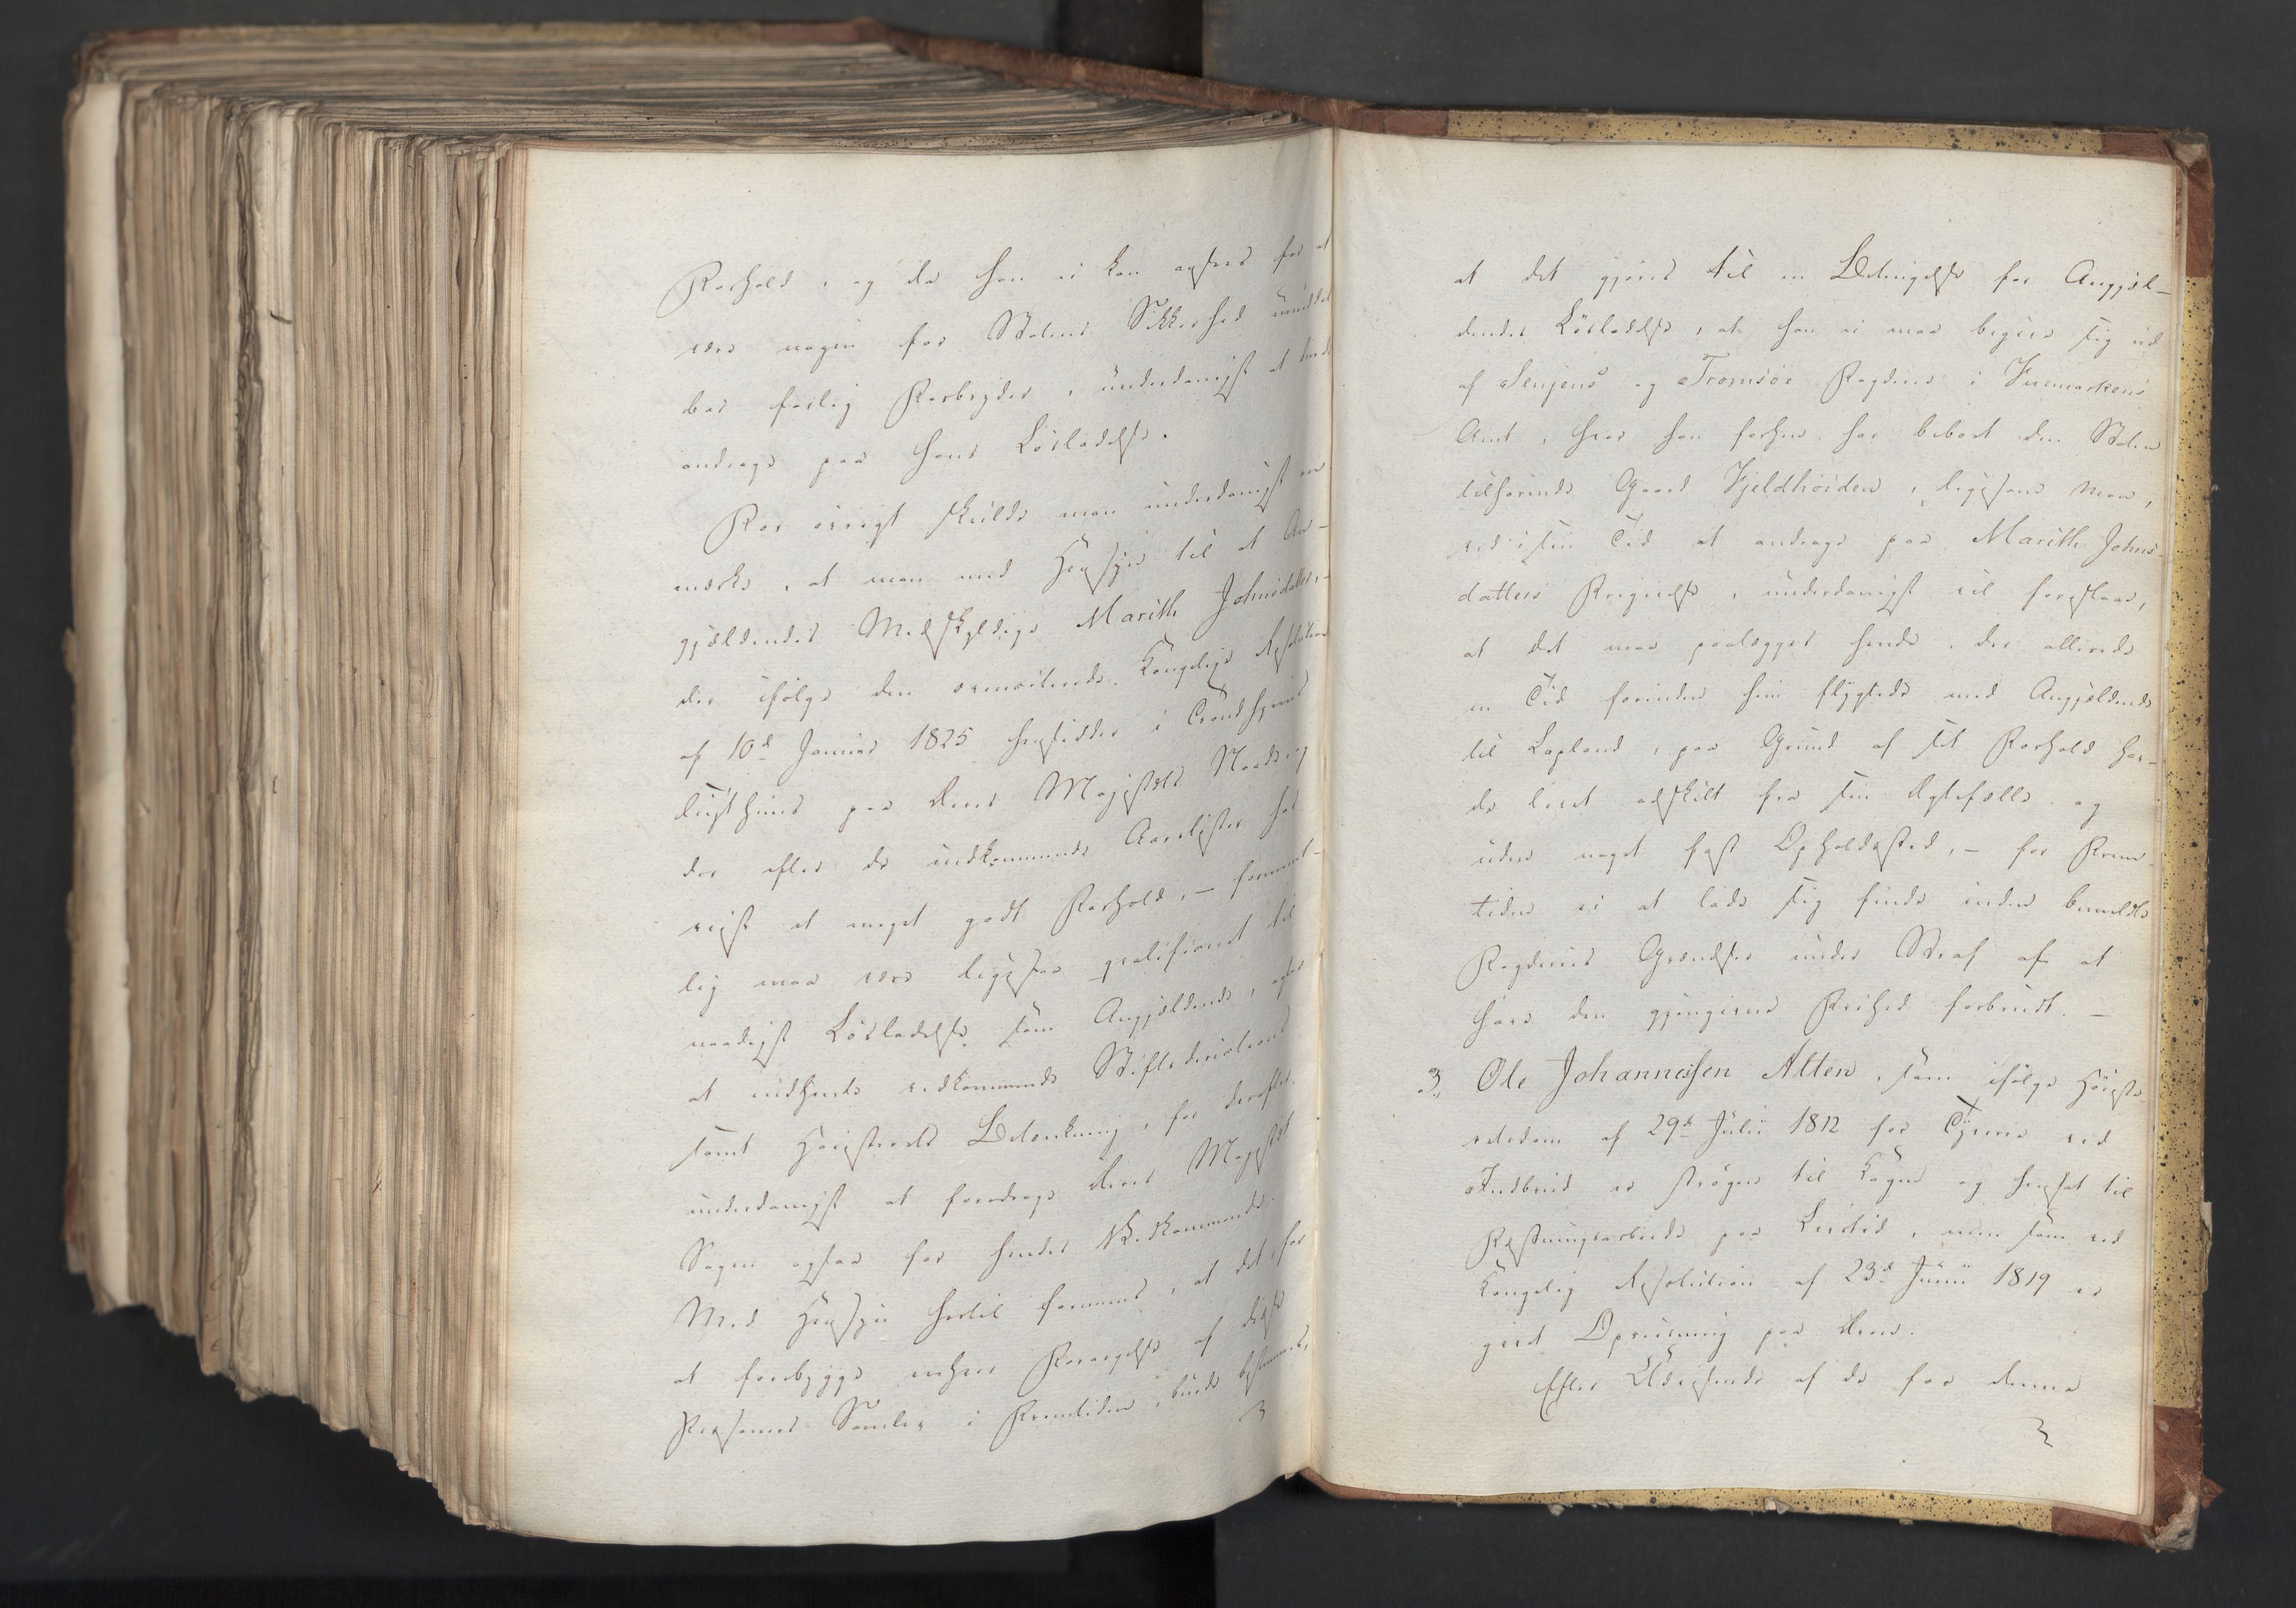 Forhold, og da han ei kan ansees for at
være nogen for Statens Sikkerhed umiddel
bar farlig Forbryder, underdanigst at burde
andrage paa hans Løsladelse.
For øvrigt skulde man underdanigst an-
mærke, at man med Hensyn til at An-
gjældendes Medskyldige Marith Johnsdatter,
der ifølge den ommeldte Kongelige Resolution
af 10d Januar 1825 hensidder i Trondhjems
Tugthuus paa Deres Majestæts Naade, og
der efter de indkommende Aarslister har
viist et meget godt Forhold, – formeent-
lig maa være ligesaa qvalificeret til
naadigst Løsladelse som Angjældende, agter
at indhente vedkommende Stiftsdirections
samt Høiesterets Betænkning, for derefter
underdanigst at foredrage Deres Majestæt
Sagen ogsaa for hendes Vedkommende.
Med Hensyn hertil formenes, at det, for
at forebygge enhver Forargelse af disse
Personers Samliv i Fremtiden, burde bestemmes,
at det gjøres til en Betingelse for Angjæl-
dendes Løsladelse, at han ei maa begive sig ud
af Senjens og Tromsøe Fogderie i Finmarkens
Amt, hvor han forhen har beboet den Staten
tilhørende Gaard Fjeldhvidden, ligesom man,
ved i sin Tid at andrage paa Marith Johns-
datters Frigivelse, underdanigst vil foreslaae,
at det maa paalægges hende, der allerede
en Tid forinden hun flygtede med Angjældende
til Lapland, paa Grund af sit Forhold hav-
de levet adskilt fra sin Ægtefælle og
uden noget fast Opholdssted, – for Frem-
tiden ei at lade sig finde inden bemeldte
Fogderies Grændser under Straf af at
have den gjengivne Frihed forbrudt. –
3, Ole Johannessen Alten, som ifølge Høieste-
retsdom af 29d Julii 1812 for Tyverie ved
Indbrud er strøgen til Kagen og hensat til
Fæstningsarbeide paa Livstid, men som ved
Kongelig Resolution af 23d Junii 1819 er
givet Opreisning paa Æren.
Efter Udvisende af de for denne